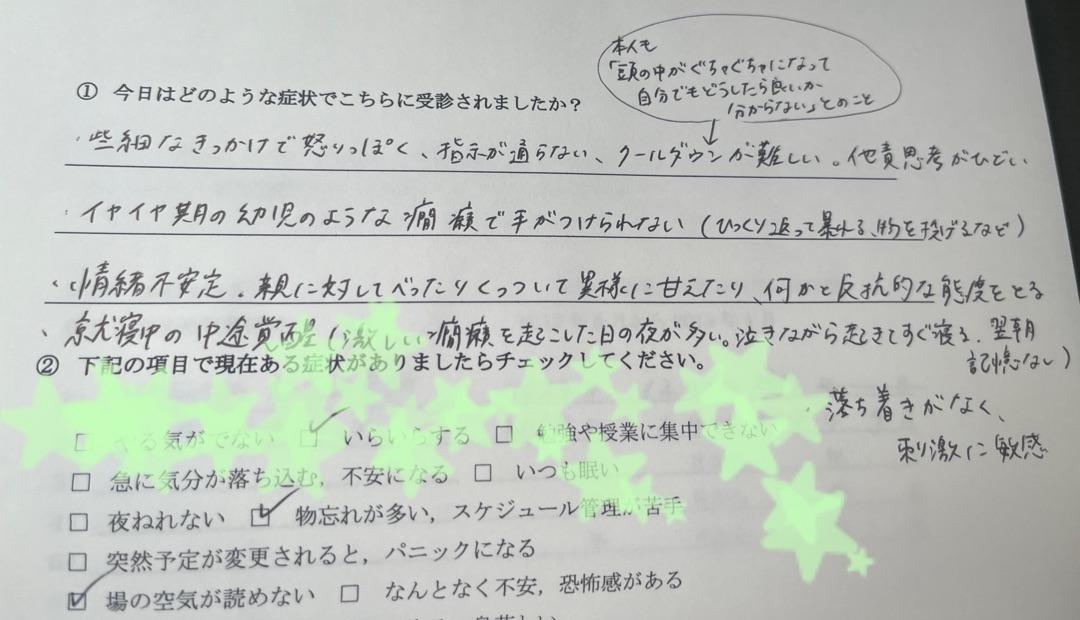 本人も
「頭の中がぐちゃぐちゃになって
自分でもどうしたら良いか
分からない」とのこと
① 今日はどのような症状でこちらに受診されましたか？
・些細なきっかけで怒りっぽく、指示が通らない、クールダウンが難しい。他責思考がひどい
・イヤイヤ期の幼児のような癇癪で手がつけられない（ひっくり返って暴れる、物を投げるなど）
・情緒不安定。親に対してべったりくっついて異様に甘えたり、何かと反抗的な態度をとる
・就寝中の中途覚醒（激しい癇癪を起こした日の夜が多い。泣きながら起きてすぐ寝る。翌朝
記憶なし）
② 下記の項目で現在ある症状がありましたらチェックしてください。
・落ち着きがなく、
刺激に敏感
□ やる気がでない ☑ いらいらする □ 勉強や授業に集中できない
□ 急に気分が落ち込む，不安になる □ いつも眠い
□ 夜ねれない ☑ 物忘れが多い，スケジュール管理が苦手
□ 突然予定が変更されると，パニックになる
☑ 場の空気が読めない □ なんとなく不安，恐怖感がある